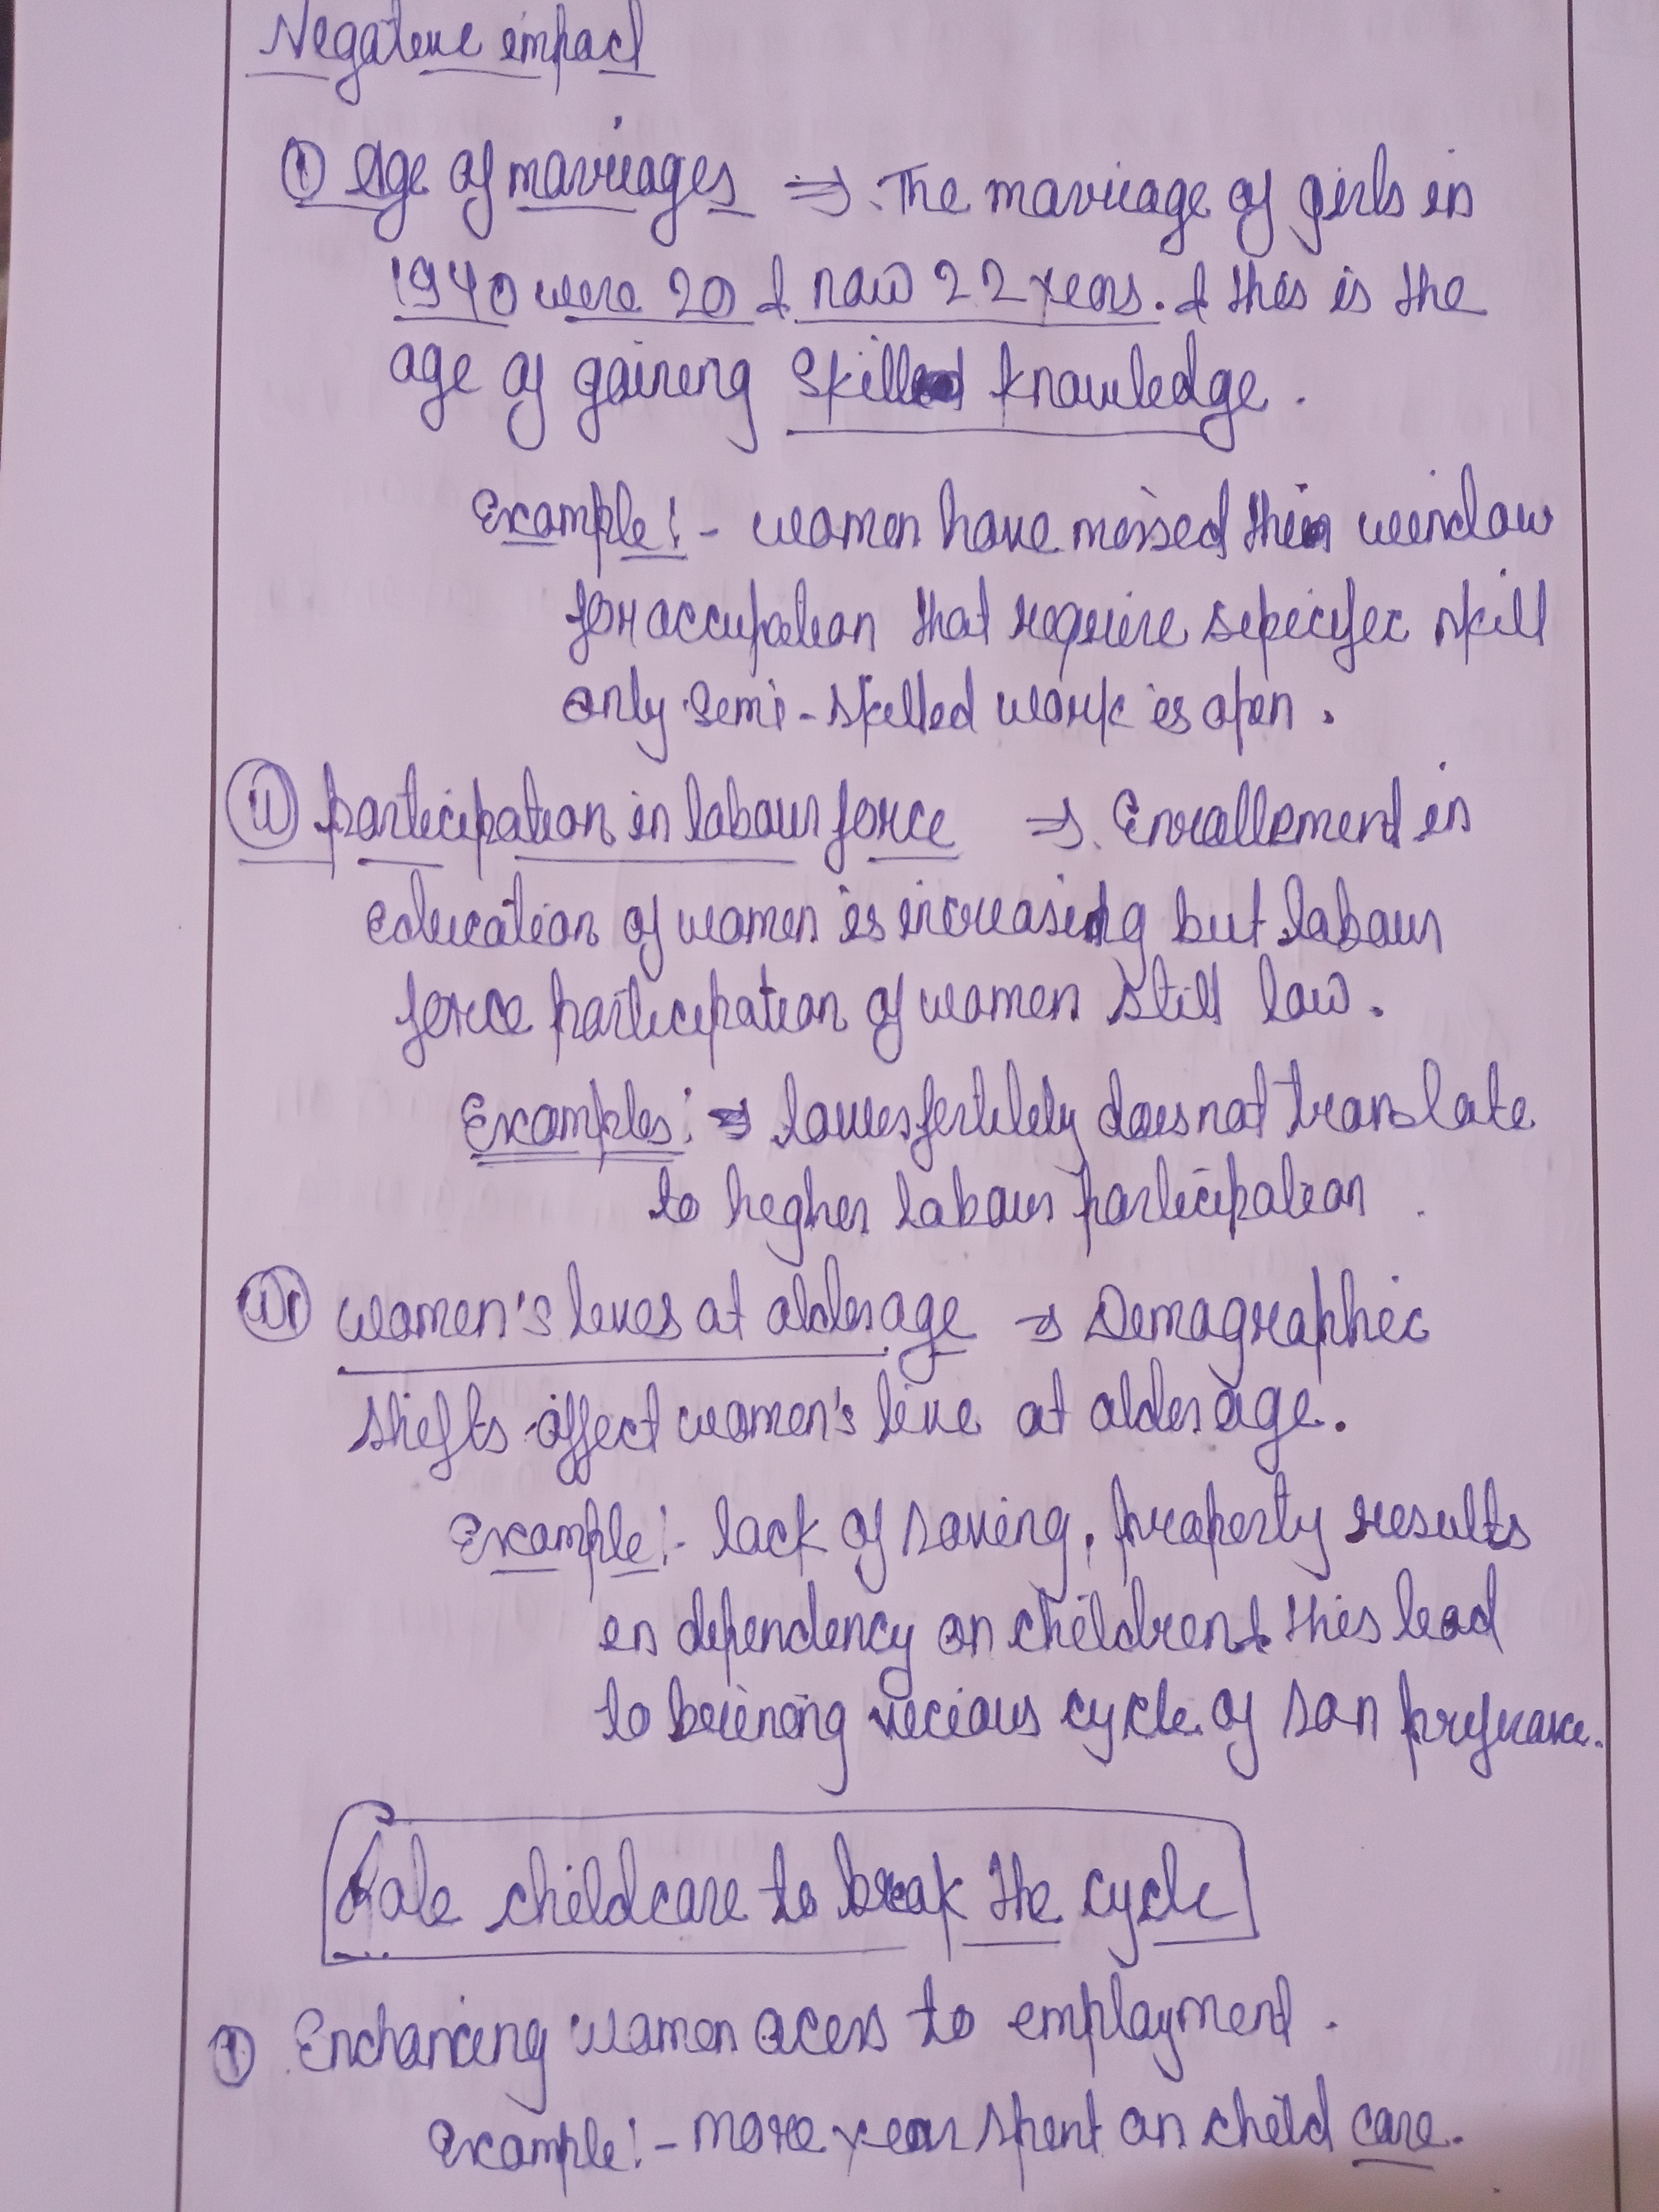 Negative impact
① Age of marriages ⇒ The marriage of girls in
1940 were 20 & now 22 years. & this is the
age of gaining skilled knowledge.
Example:- women have missed their window
for occupation that require sepecific skill
only semi-skilled work is open.
(ii) participation in labour force ⇒ Enrollement in
education of women is increasing but labour
force participation of women still low.
Examples: ⇒ lower fertility does not translate
to higher labour participation.
(iii) women's lives at older age ⇒ Demographic
shifts affect women's live at older age.
Example:- lack of saving, property results
in dependency on children & this lead
to vecious cycle of son
childcare to break the cycle
① Enchancing women acess to employment.
Example:- more year spent on child care.